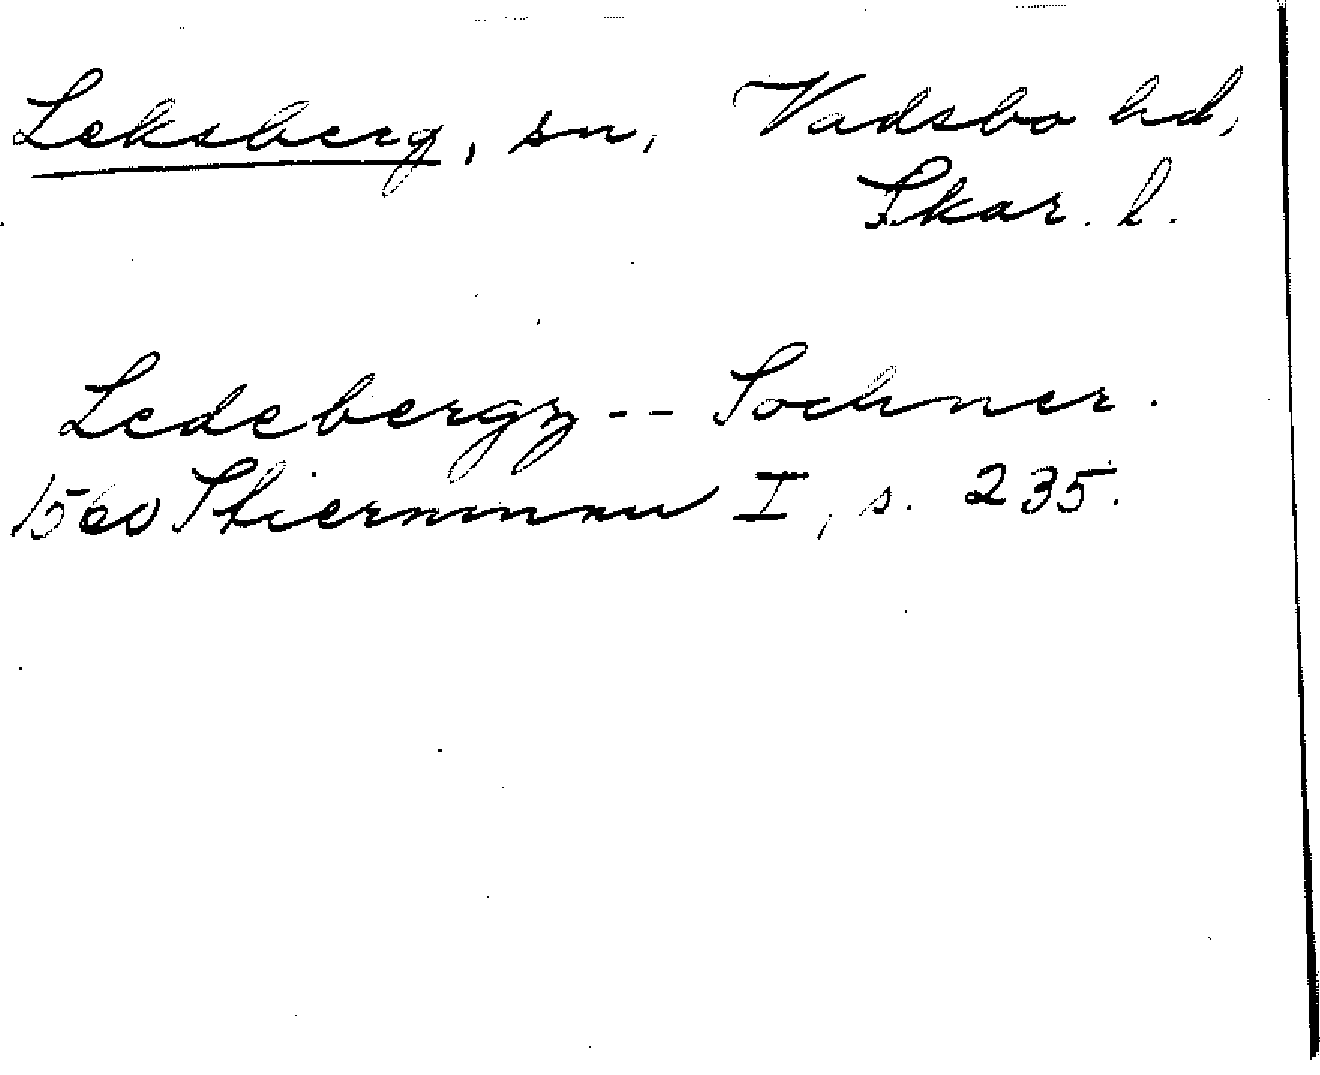 Leksberg, sn, Vadsbo hd,
Skar. l.
Ledebergz -- Sochner.
1560 Stiernman I, s. 235.